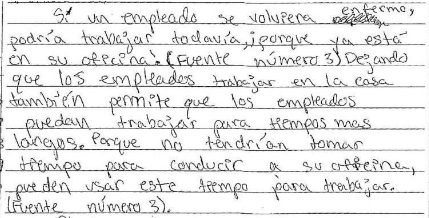 Si un empleado se volviera enfermo,
podría trabajar todavía, ¡porque ya está
en su oficina! (Fuente número 3) Dejando
que los empleados trabajar en la casa
también permite que los empleados
puedan trabajar para tiempos mas
largos. Porque no tendrían tomar
tiempo para conducir a su officina,
pueden usar este tiempo para trabajar.
(Fuente número 3).